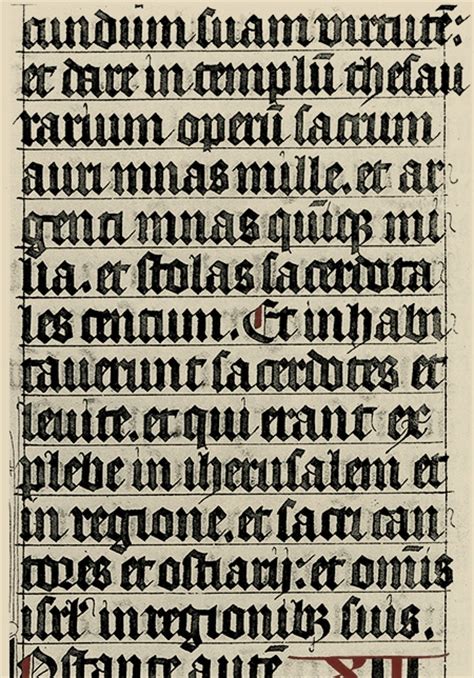 cundūm suam virtutē:
et dare in templū thesau
rarium operū sacrum
auri mnas mille. et ar
genti mnas quīqꝫ mi
lia. et stolas sacerdota
les centum. Et inhabi
taverunt sacerdotes et
levite. et qui erant ex
plebe in iherusalem et
in regione. et sacri can
tores et ostiarij: et om̄is
isrl̄ in regionibꝫ suis.
Instante autē XII